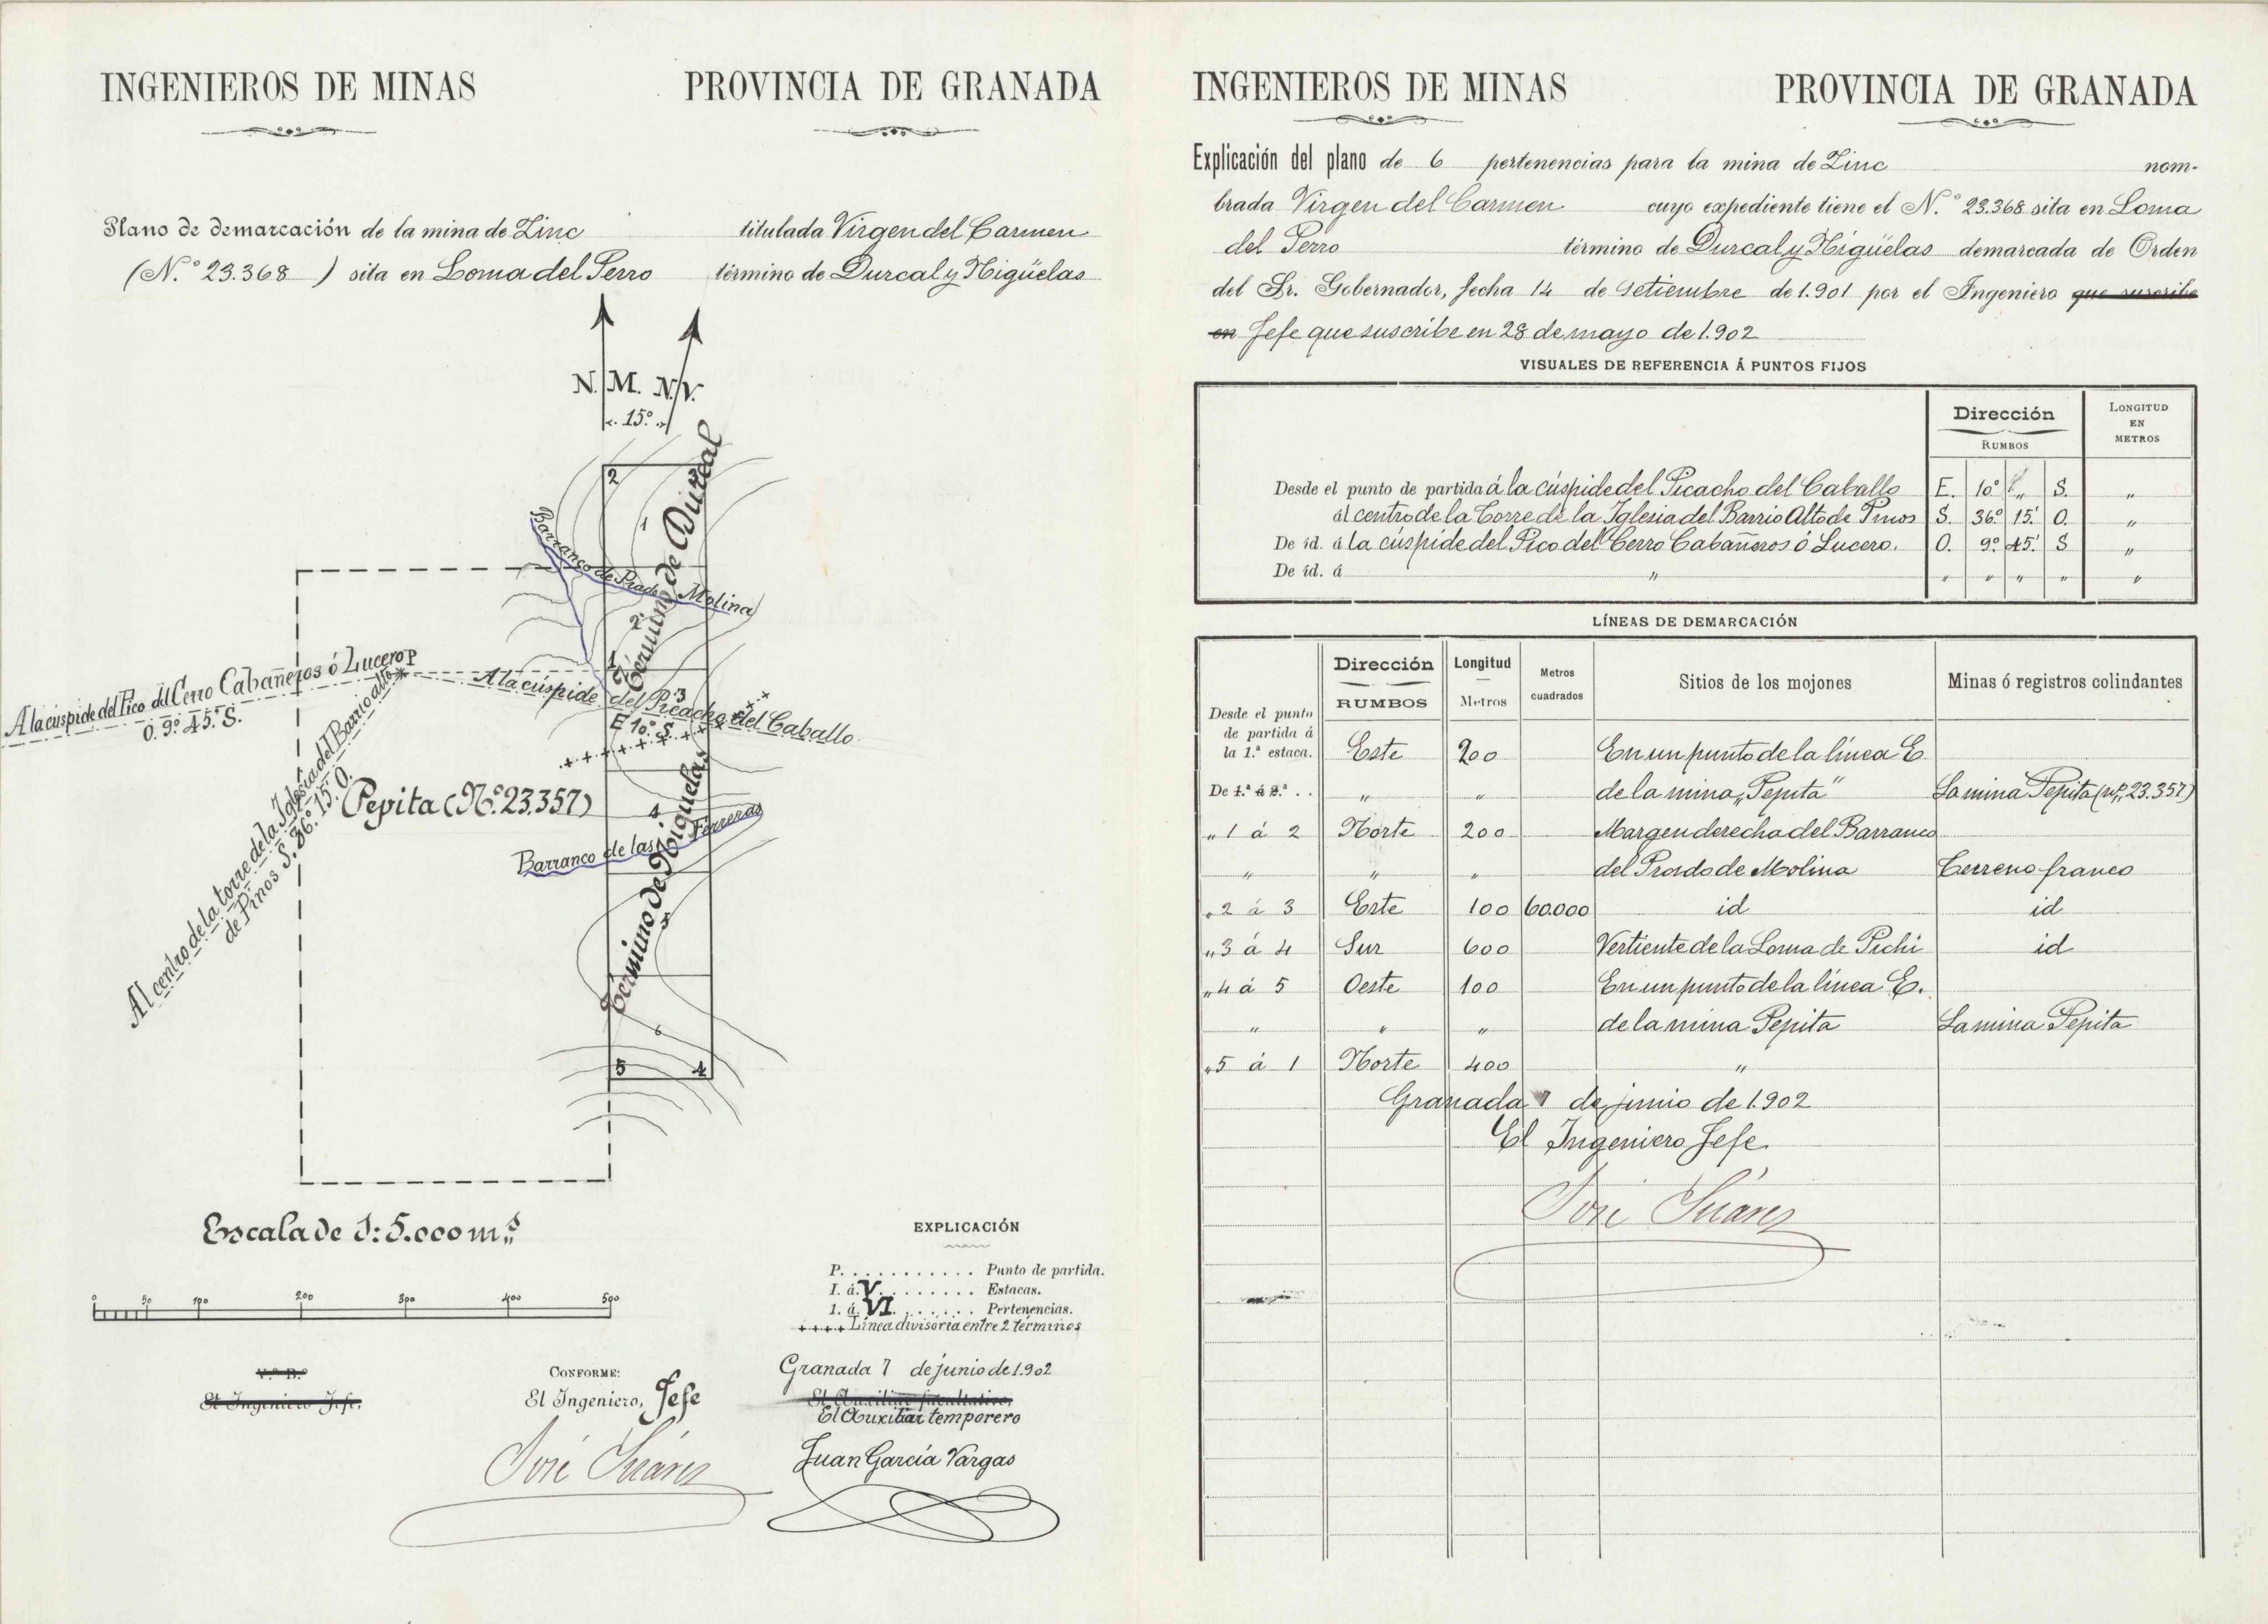 INGENIEROS DE MINAS PROVINCIA DE GRANADA
Plano de demarcación de la mina de Zinc titulada Virgen del Carmen
(N.º 23.368 ) sita en Loma del Perro término de Durcal y Nigüelas
N. M. N. V.
15º
2
1
Término de Durcal
Barranco de Prado Molina
2
1
A la cúspide del Pico del Cerro Cabañeros ó Lucero P
O. 9º 45' S.
A la cúspide del Picacho del Caballo
3
E 10º S.
Al centro de la torre de la Iglesia del Barrio alto
de Pinos S. 36º 15' O.
Pepita (Nº 23.357)
4
Barranco de las Ferreras
Término de Niguelas
5
6
5 4
Escala de 1:5.000 m.s
0 50 100 200 300 400 500
EXPLICACIÓN
P. . . . . . . . . . . . Punto de partida.
I. á. V. . . . . . . . . Estacas.
1. á. VI. . . . . . . Pertenencias.
++++ Línea divisoria entre 2 términos
V.º B.º
El Ingeniero Jefe,
CONFORME:
El Ingeniero, Jefe
José Suárez
Granada 7 de junio de 1.902
El Auxiliar facultativo,
El Auxiliar temporero
Juan García Vargas
INGENIEROS DE MINAS PROVINCIA DE GRANADA
Explicación del plano de 6 pertenencias para la mina de Zinc nom-
brada Virgen del Carmen cuyo expediente tiene el N.º 23.368 sita en Loma
del Perro término de Durcal y Nigüelas demarcada de Orden
del Sr. Gobernador, fecha 14 de setiembre de 1.901 por el Ingeniero que suscribe
en Jefe que suscribe en 28 de mayo de 1.902
VISUALES DE REFERENCIA Á PUNTOS FIJOS
Dirección LONGITUD EN METROS
RUMBOS
Desde el punto de partida á la cúspide del Picacho del Caballo E. 10º „ S. „
al centro de la Torre de la Iglesia del Barrio Alto de Pinos S. 36º 15' O. „
De id. á la cúspide del Pico del Cerro Cabañeros ó Lucero. O. 9º 45' S „
De id. á „ „ „ „ „ „
LÍNEAS DE DEMARCACIÓN
Dirección Longitud Metros cuadrados Sitios de los mojones Minas ó registros colindantes
RUMBOS Metros
Desde el punto
de partida á
la 1.ª estaca. Este 200 En un punto de la línea E.
De 1.ª á 2.ª . . „ „ de la mina „Pepita" La mina Pepita (nº 23.357)
„ 1 á 2 Norte 200 Margen derecha del Barranco
„ „ „ del Prado de Molina Terreno franco
„ 2 á 3 Este 100 60.000 id id
„ 3 á 4 Sur 600 Vertiente de la Loma de Pichi id
„ 4 á 5 Oeste 100 En un punto de la línea E.
„ „ „ de la mina Pepita La mina Pepita
„ 5 á 1 Norte 400 „
Granada 7 de junio de 1.902
El Ingeniero Jefe
José Suárez